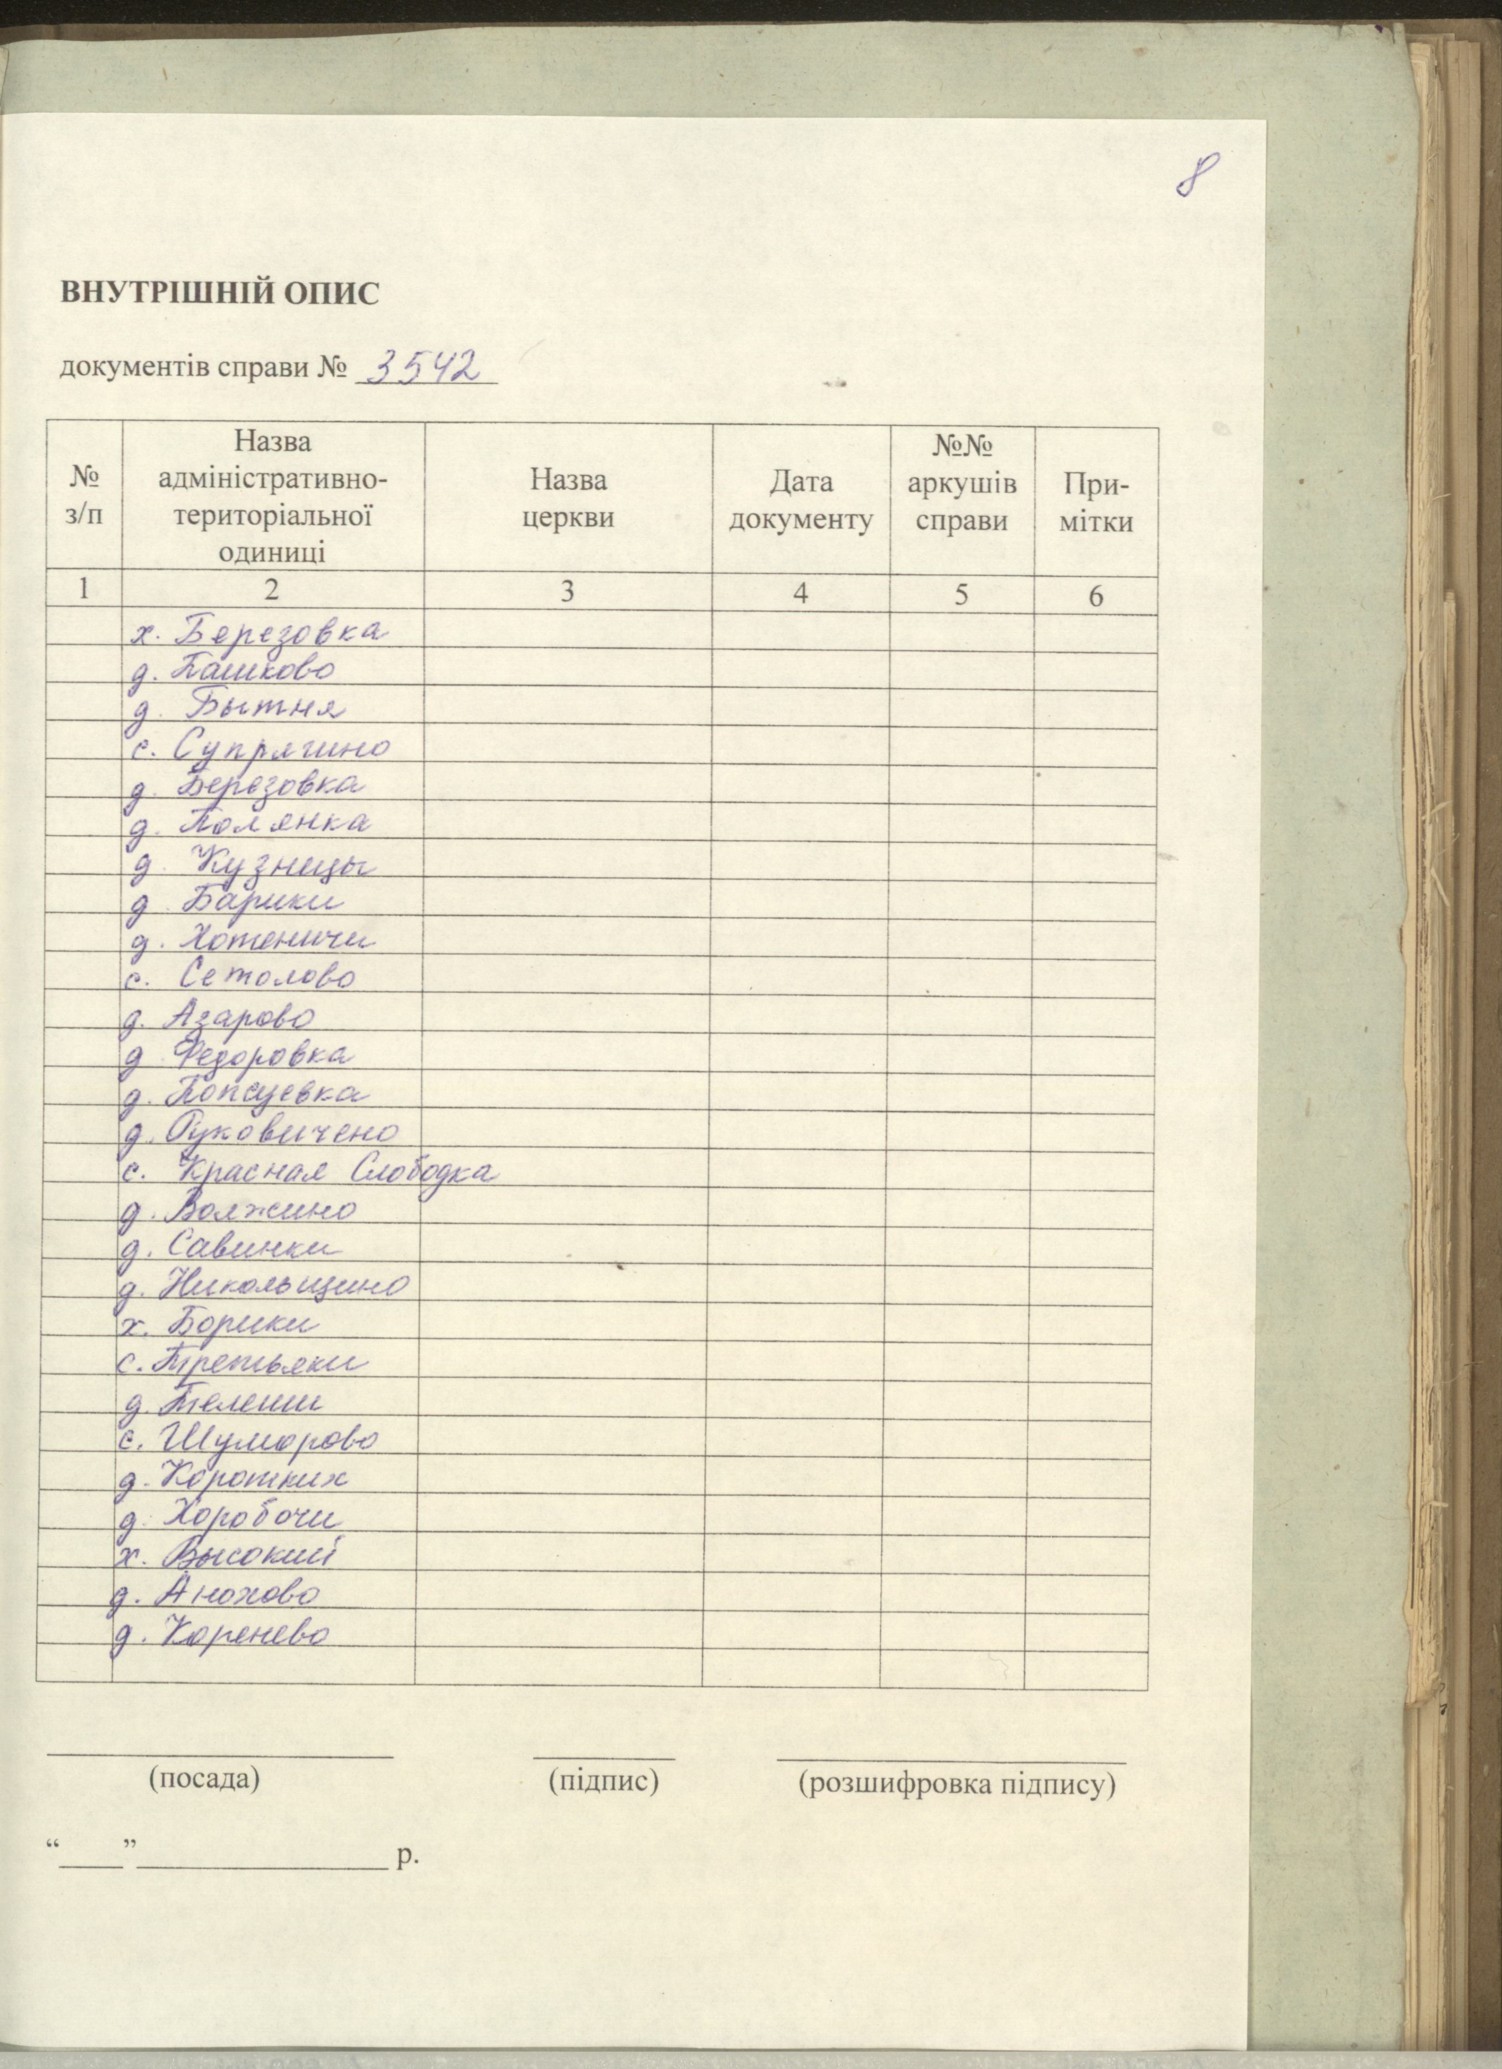 8
ВНУТРІШНІЙ ОПИС
документів справи № 3542
№ з/п | Назва адміністративно-територіальної одиниці | Назва церкви | Дата документу | №№ аркушів справи | При-мітки
1 | 2 | 3 | 4 | 5 | 6
х. Березовка
д. Пашково
д. Бытня
с. Супрягино
д. Березовка
д. Полянка
д. Кузницы
д. Барики
д. Хотеничи
с. Сетолово
д. Азарово
д. Федоровка
д. Попсуевка
д.
с. Красная Слободка
д. Волжино
д. Савинки
д. Никольщино
х. Борики
с. Третьяки
д. Телеши
с. Шуморово
д. Коротких
д. Хоробочи
х. Высокий
д. Анохово
д. Коренево
(посада) (підпис) (розшифровка підпису)
“____”________________ р.